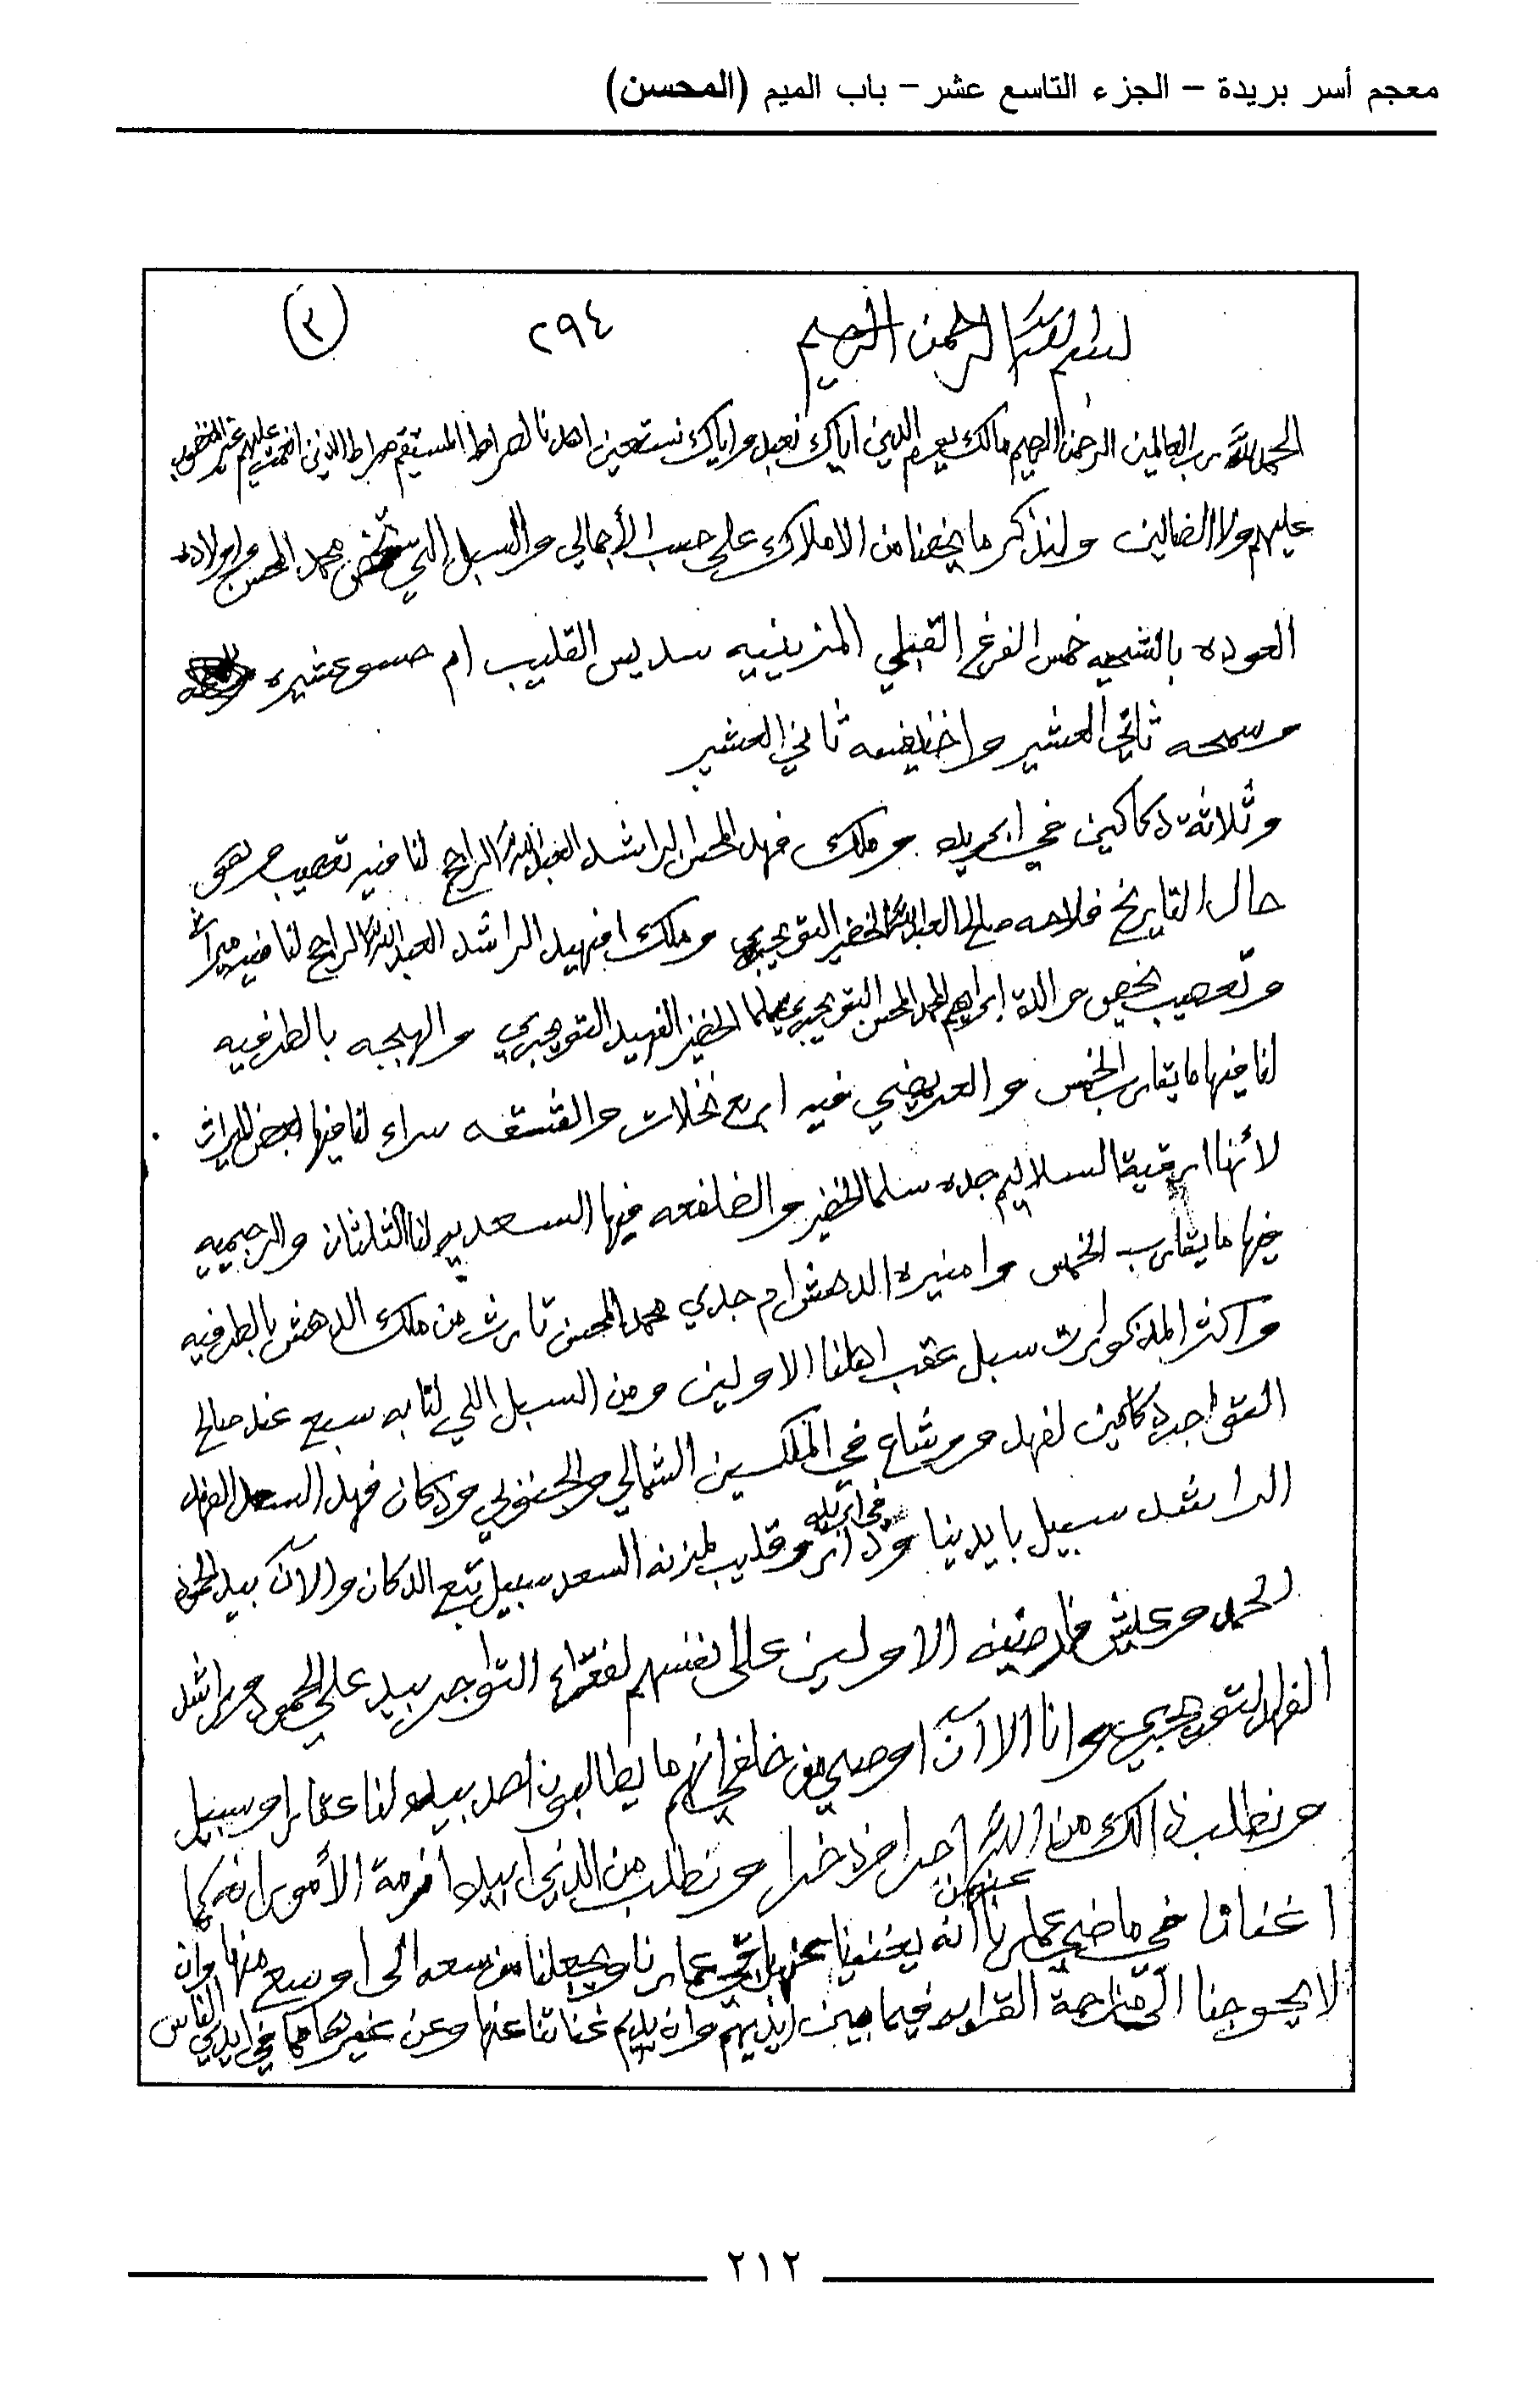 معجم أسر بريدة – الجزء التاسع عشر – باب الميم (المحسن)
بسم الله الرحمن الرحيم ٢٩٤ ٢
الحمد لله رب العالمين الرحمن الرحيم مالك يوم الدين اياك نعبد واياك نستعين اهدنا الصراط المستقيم صراط الذين انعمت عليهم غير المغضوب
عليهم ولا الضالين ولنذكر ما يخصنا من الاملاك على حسب الأجمالي والسبل التي تخص محمد المحسن واولاده
العوده بالشحيه خمس الفرغ القبلي المزينيه سديس القليب ام حسو عشيره
وسمحه ثاني العشير واخنيفسه ثاني العشير
وثلاثة دكاكين في ابريده وملك فهد المحسن الراشد العبدالله الراجح لنا فيه تعصيب وهي
حال التاريخ فلاحه صالح العبدالله الخضير التويجري وملك افهيد الراشد العبدالله الراجح لنا فيه ميراث
وتعصيب يخص والدة ابراهيم المحمد المحسن التويجري سلما الخضير الفهيد التويجري والهجه بالطرفيه
لنا فيها ما يقارب الخمس والعريضي فيه اربع نخلات والقشقه سراء لنا فيها بعض الميراث
لأنها ارقية السلايم جده سلما الخضير والضلفعه فيها السعديه لنا الثلثان والرجيبيه
فيها ما يقارب الخمس وامنيره الدهش ام جدي محمد المحسن تارث من ملك الدهش بالطرفيه
واكثر المذكورات سبل عقب اهلنا الاولين ومن السبل اللي لنا به سبع عند صالح
التواجر دكاكين لفهد ومشاع في الملكين الشمالي والجنوبي ودكان فهد السعد الفهد
الراشد سبيل بايدينا ودار في ابريده وقليب لمزنه السعد سبيل تبع الدكان والآن بيد الحمود
الحمد وعيش فارضينه الاولين على انفسهم لفقراء التواجر بيد علي الحمود وراشد
الفهد التويجري وانا الاآن اوصي من خلفي انهم ما يطالبون احد بيده لنا عقار او سبيل
ونطلب ذالك من الله اجرا وذخرا ونطلب من الذي ابيده ازمة الأمور انه كما
اغنانا في ماضي عمارنا عنهن انه يغنينا عنهن باقي عمارنا ويجعلنا من سعه الى اوسع منها وان
لا يحوجنا الى مزاحمة القرايب فيما بين ايديهم وان يديم غنانا عنها وعن غيرها مما في ايدي الناس
٢١٢